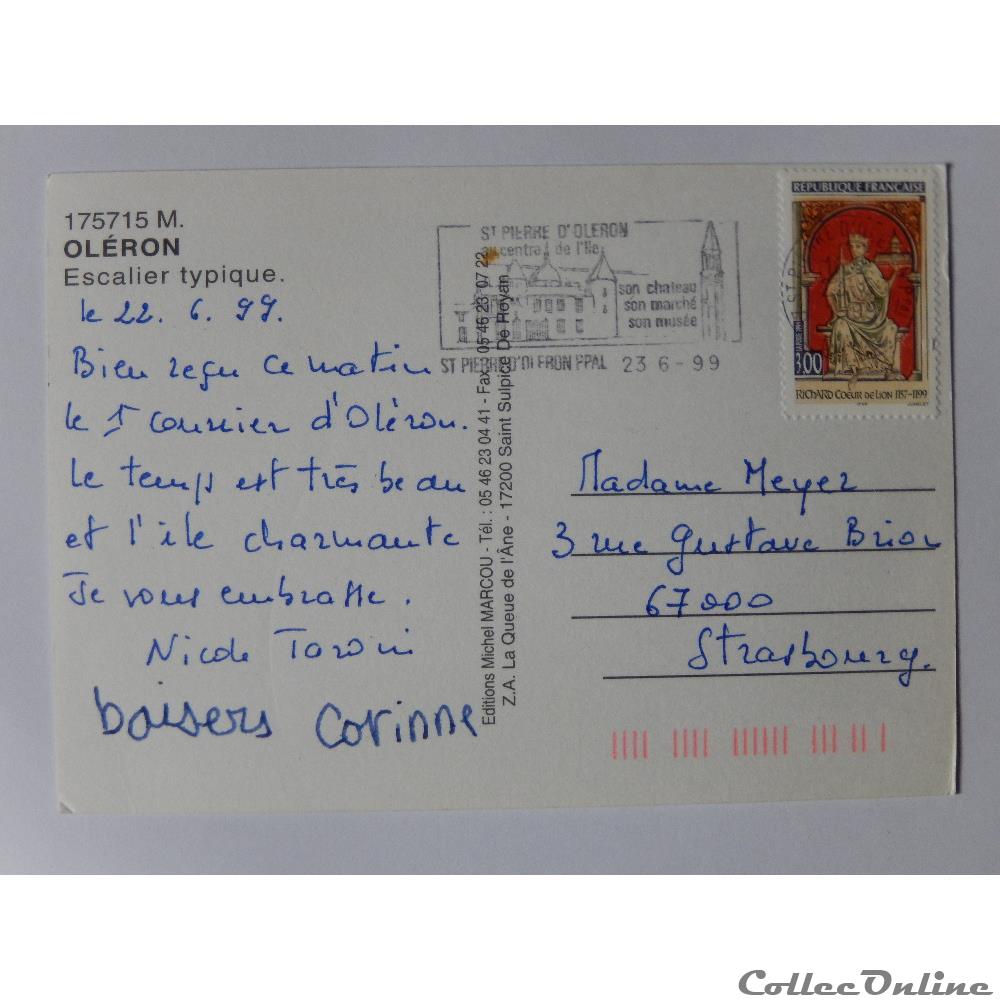 175715 M.
OLÉRON
Escalier typique.
le 22. 6. 99.
Bien reçu ce matin
le 1er courrier d'Oléron.
Le temps est très beau
et l'ile charmante
Je vous embrasse.
Nicole
baisers Corinne
Editions Michel MARCOU - Tél. : 05 46 23 04 41 - Fax : 05 46 23 07 22
Z.A. La Queue de l'Âne - 17200 Saint Sulpice De Royan
ST PIERRE D'OLERON
au centre de l'Ile
son chateau
son marché
son musée
ST PIERRE D'OLERON PPAL 23 6 - 99
RÉPUBLIQUE FRANÇAISE
3,00
RICHARD COEUR DE LION 1157-1199
Madame Meyer
3 rue Gustave Brion
67000
Strasbourg.
CollecOnline